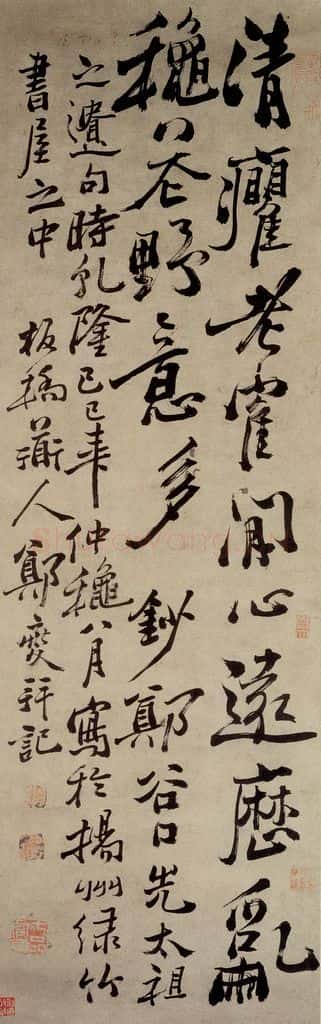 清癯老隺閒心遠歷亂
穐花野意多 鈔鄭谷口先太祖
之遺句時乾隆己巳年仲穐八月寫於揚州綠竹
書屋之中 板橋人鄭燮拜記